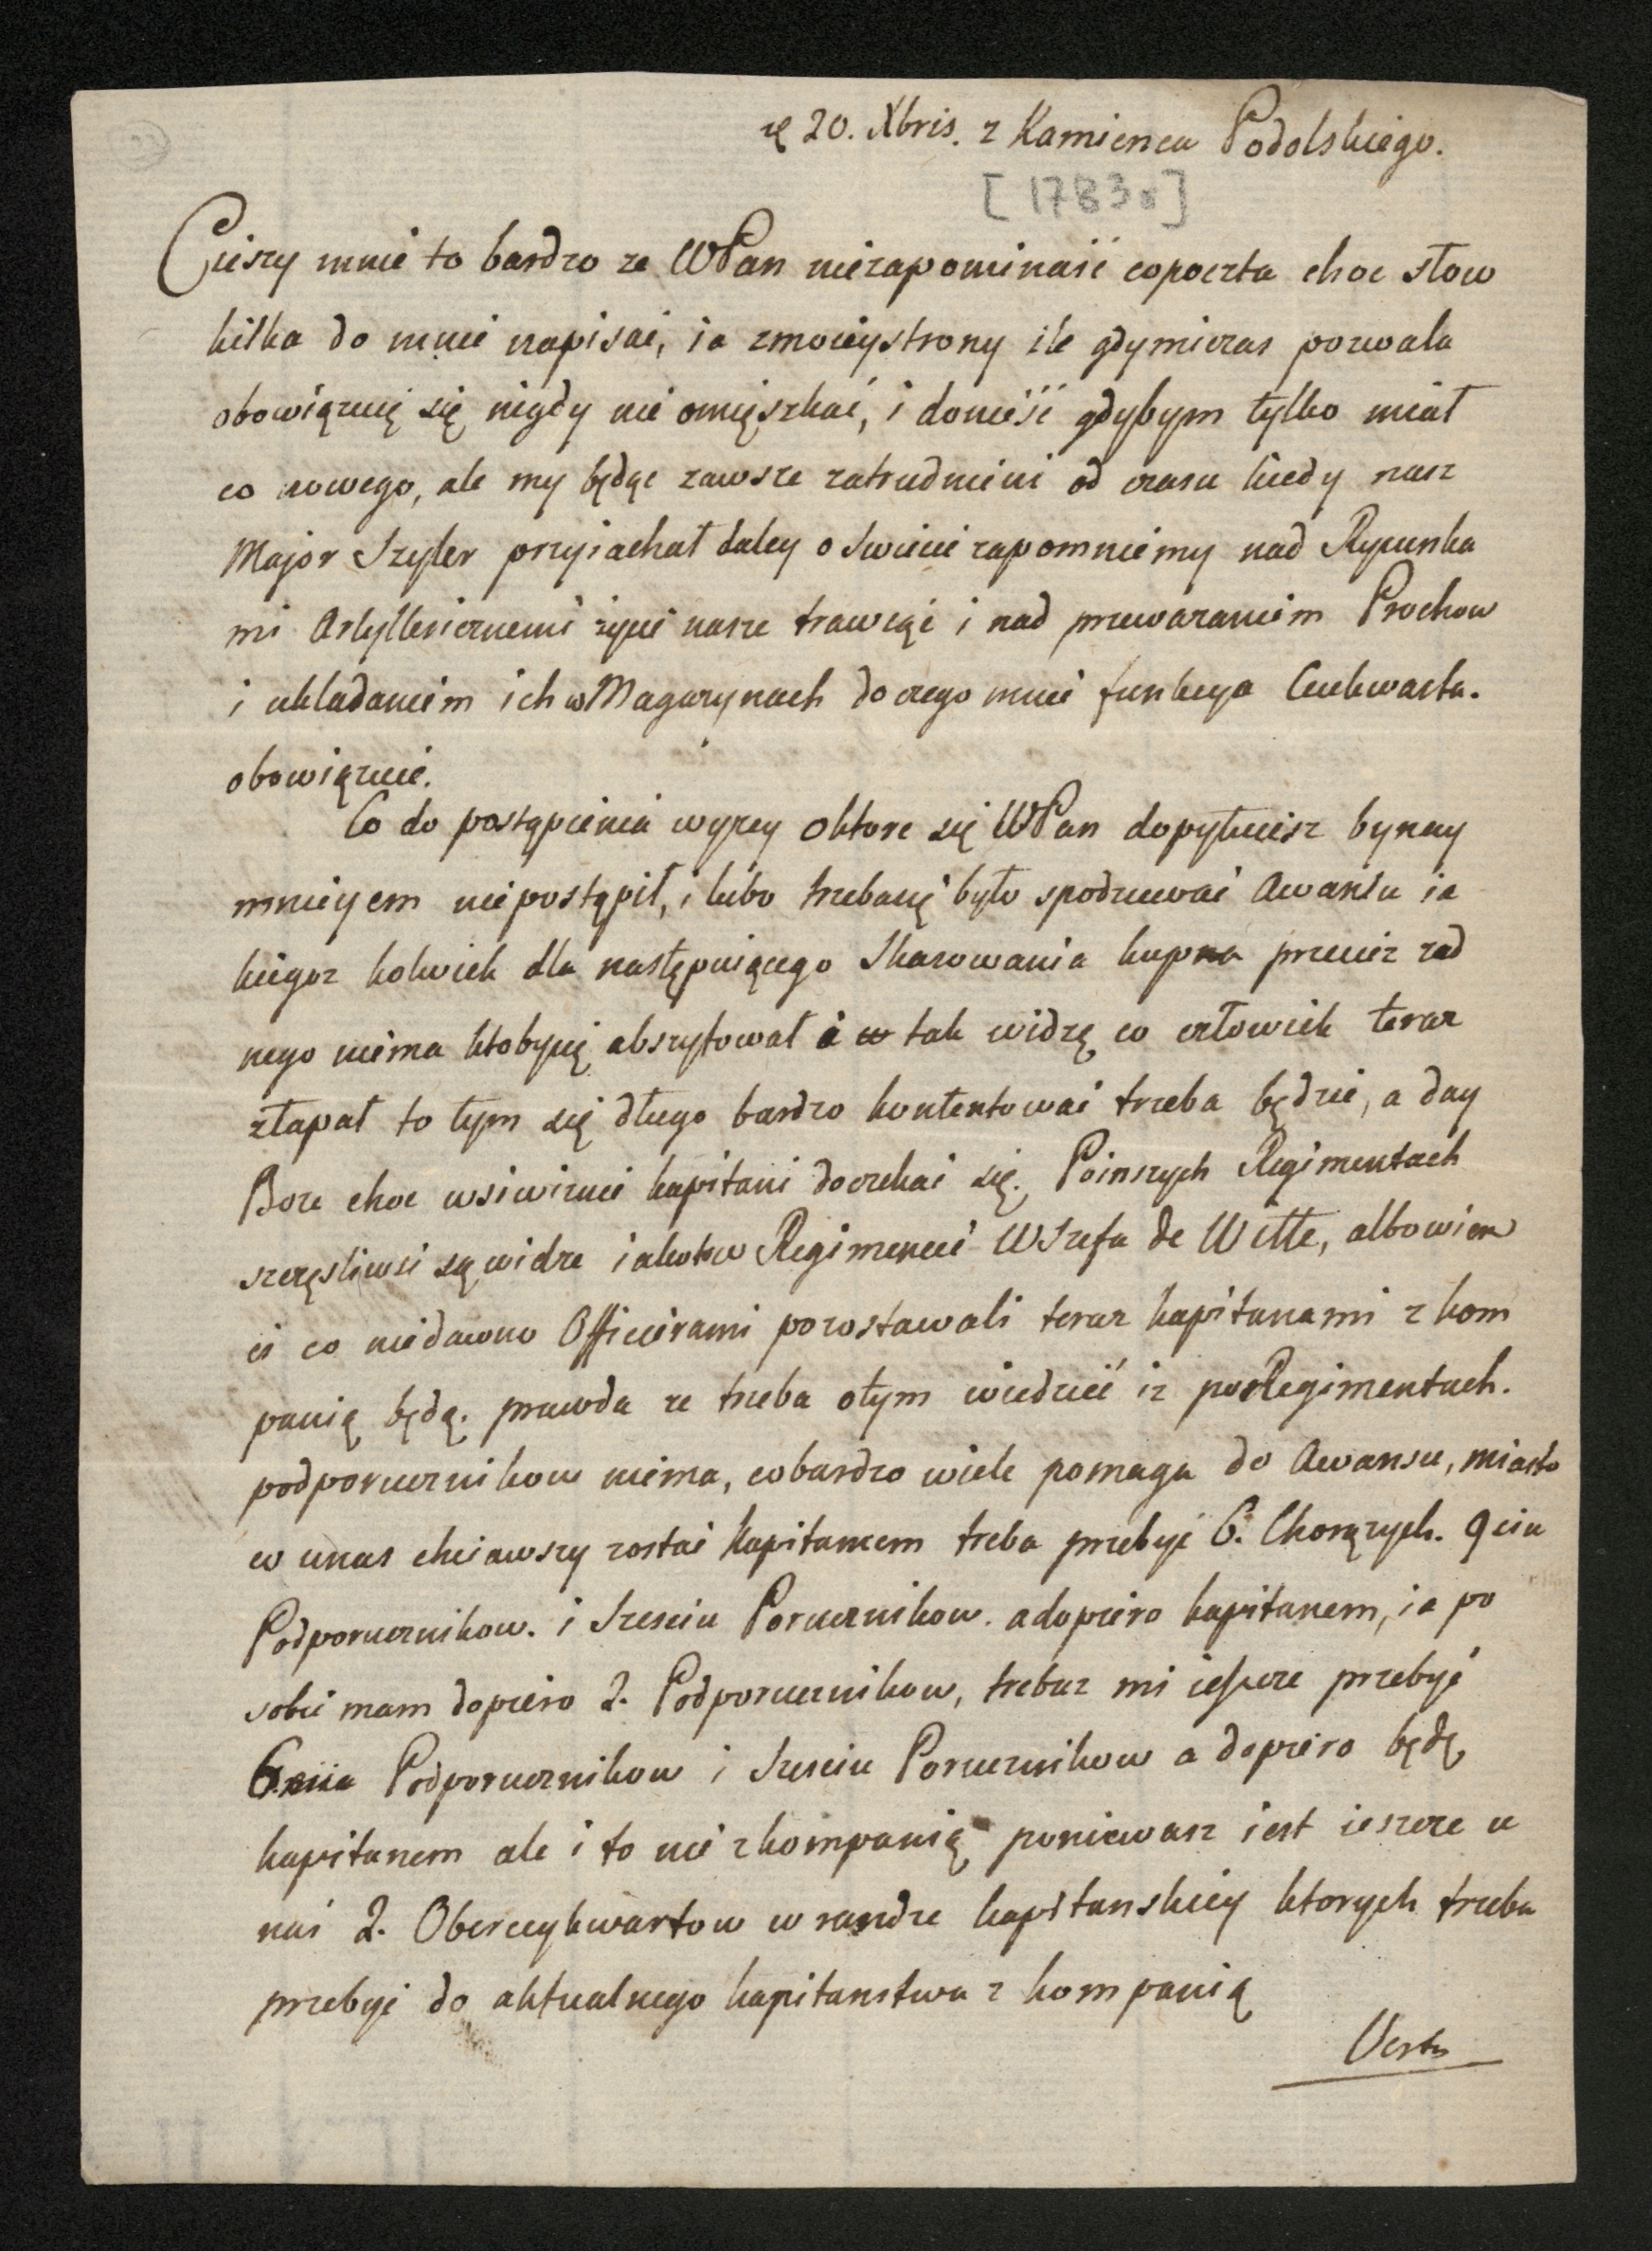 20. Xbris. z Kamienca Podolskiego.
[1783r]
Cieszy mnie to bardzo ze WPan niezapominasz copoczta choc słow
kilka do mnie napisać, ia zmoieystrony ile gdymiczas pozwala
obowięzuię się nigdy nie omięszkać, i donieść gdybym tylko miał
co nowego, ale my będąc zawsze zatrudnieni od czasu kiedy nasz
Major Szyler przyiachał daley o Swiecie zapomniemy nad Rysunka
mi Artylleriicznemi życie nasze trawiąc i nad przewazaniem Prochow
i układaniem ich w Magazynach do czego mnie funkcya Ceukwarta.
obowięzuie.
Co do postąpienia wyzey oktore się WPan dopytuiesz bynay
mnieyem niepostąpił, i lubo trzebasię było spodziewać Awansu ia
kiegoz kolwiek dla następuiącego Skasowania kupna przeciez zad
nego niema ktobysię abszytował i tak widzę co człowiek teraz
złapał to tym się długo bardzo kontentować trzeba będzie, a day
Boze choc wsiwiznie kapitanii doczekać się. Poinszych Regimentach
szczęsliwsi są widze iakotow Regimencie WSzefa de Witte, albowiem
ci co niedawno Officierami pozostawali teraz kapitanami z kom
panią będą. prawda ze trzeba otym wiedzieć iz po Regimentach.
podporucznikow niema, cobardzo wiele pomaga do Awansu, miasto
co unas chciawszy zostać Kapitanem treba przebyć 6. Chorązych. 9ciu
Podporucznikow. i Szesciu Porucznikow. adopiero kapitanem, ia po
sobie mam dopiero 2. Podporucznikow, trebaz mi ieszcze przebyć
Podporucznikow i Szesciu Porucznikow a dopiero będę
kapitanem ale i to nie z kompanią poniewasz iest ieszcze u
nas 2. Oberceykwartow w randze kapitanskiey ktorych trzeba
przebyć do aktualnego kapitanstwa z kompanią
Verte